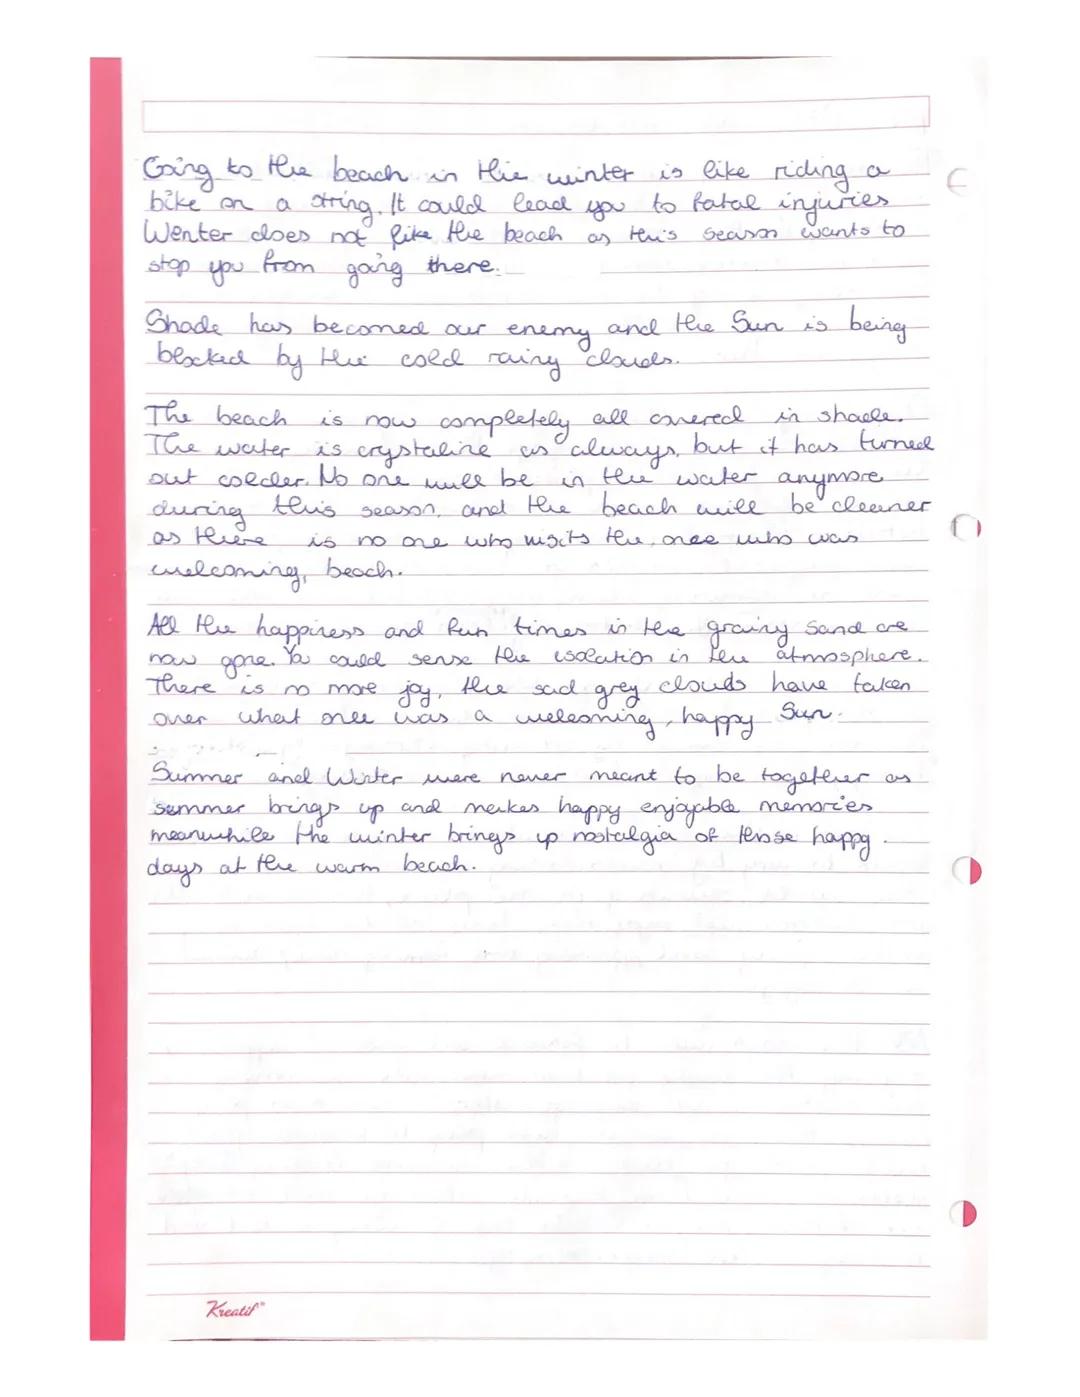 Going to the beach in the winter is like riding a
bike on a string. It could lead you to fatal injuries
Winter does not like the beach as this season wants to
stop you from going there.
Shade has becomed our enemy and the Sun is being
blocked by the cold rainy clouds.
The beach is now completely all covered in shade.
The water is crystaline as always, but it has turned
out colder. No one will be in the water anymore
during this season, and the beach will be cleaner
as there is no one who visits the, once who was
welcoming, beach.
All the happiness and fun times in the grainy sand are
now gone. You could sense the isolation in the atmosphere.
There is no more joy, the sad grey clouds have taken
over what once was a welcoming, happy Sun.
Summer and Winter were never meant to be together as
summer brings up and makes happy enjoyable memories
meanwhile the winter brings up nostalgia of those happy
days at the warm beach.
Kreatif